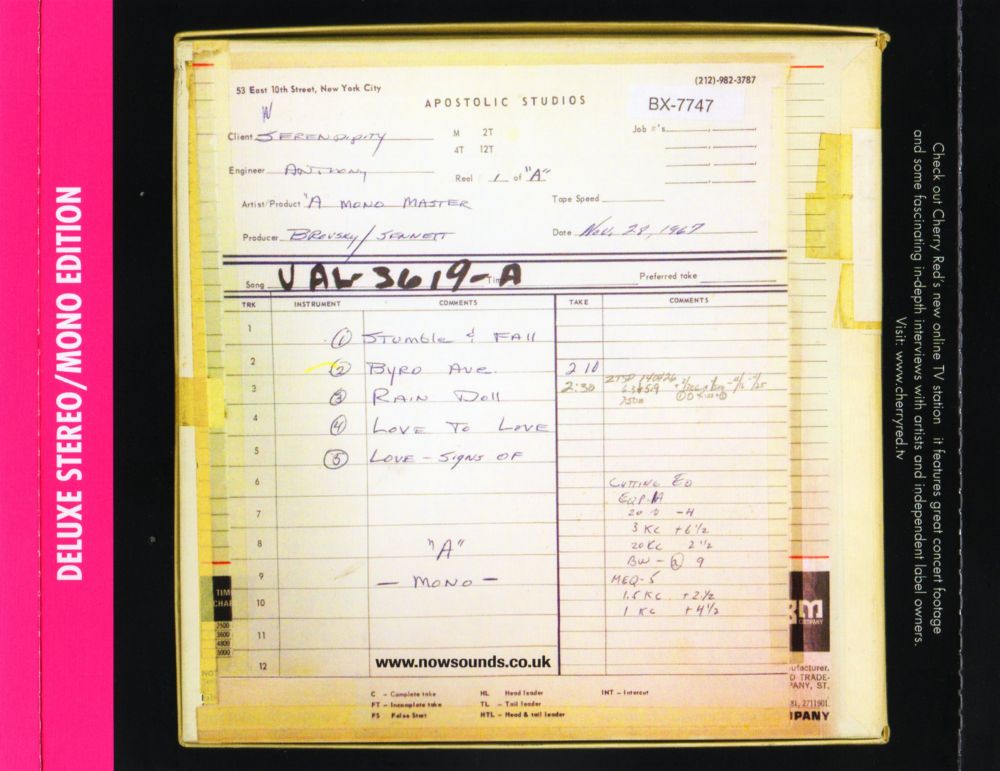 DELUXE STEREO/MONO EDITION
53 East 10th Street, New York City
(212)-982-3787
APOSTOLIC STUDIOS
BX-7747
Client SERENDIPITY
M 2T
4T 12T
Job #'s
Engineer ANTHONY
Reel 1 of "A"
Artist/Product "A MONO MASTER
Tape Speed
Producer BROVSKY/JENNETT
Date Nov, 28, 1967
Song UAL 3619-A
Preferred take
TRK INSTRUMENT COMMENTS TAKE COMMENTS
1 ① STUMBLE & FALL
2 ② BYRD AVE. 2 10
3 ③ RAIN DOLL 2:30
4 ④ LOVE TO LOVE
5 ⑤ LOVE - SIGNS OF
6 CUTTING EQ
EQP-1A
7 20 -4
3 KC +6 1/2
8 "A" 20 KC 2 1/2
BW - @ 9
9 - MONO - MEQ-5
10 1.5 KC +2 1/2
1 KC +4 1/2
11
12 www.nowsounds.co.uk
C - Complete take HL Head leader INT - Intercut
FT - Incomplete take TL - Tail leader
FS False Start HTL - Head & tail leader
TIM
CHA
2500
3600
4800
5000
NO
3m
COMPANY
ufacturer.
D TRADE-
PANY, ST.
81, 2711901.
PANY
Check out Cherry Red's new online TV station it features great concert footage
and some fascinating in-depth interviews with artists and independent label owners.
Visit: www.cherryred.tv